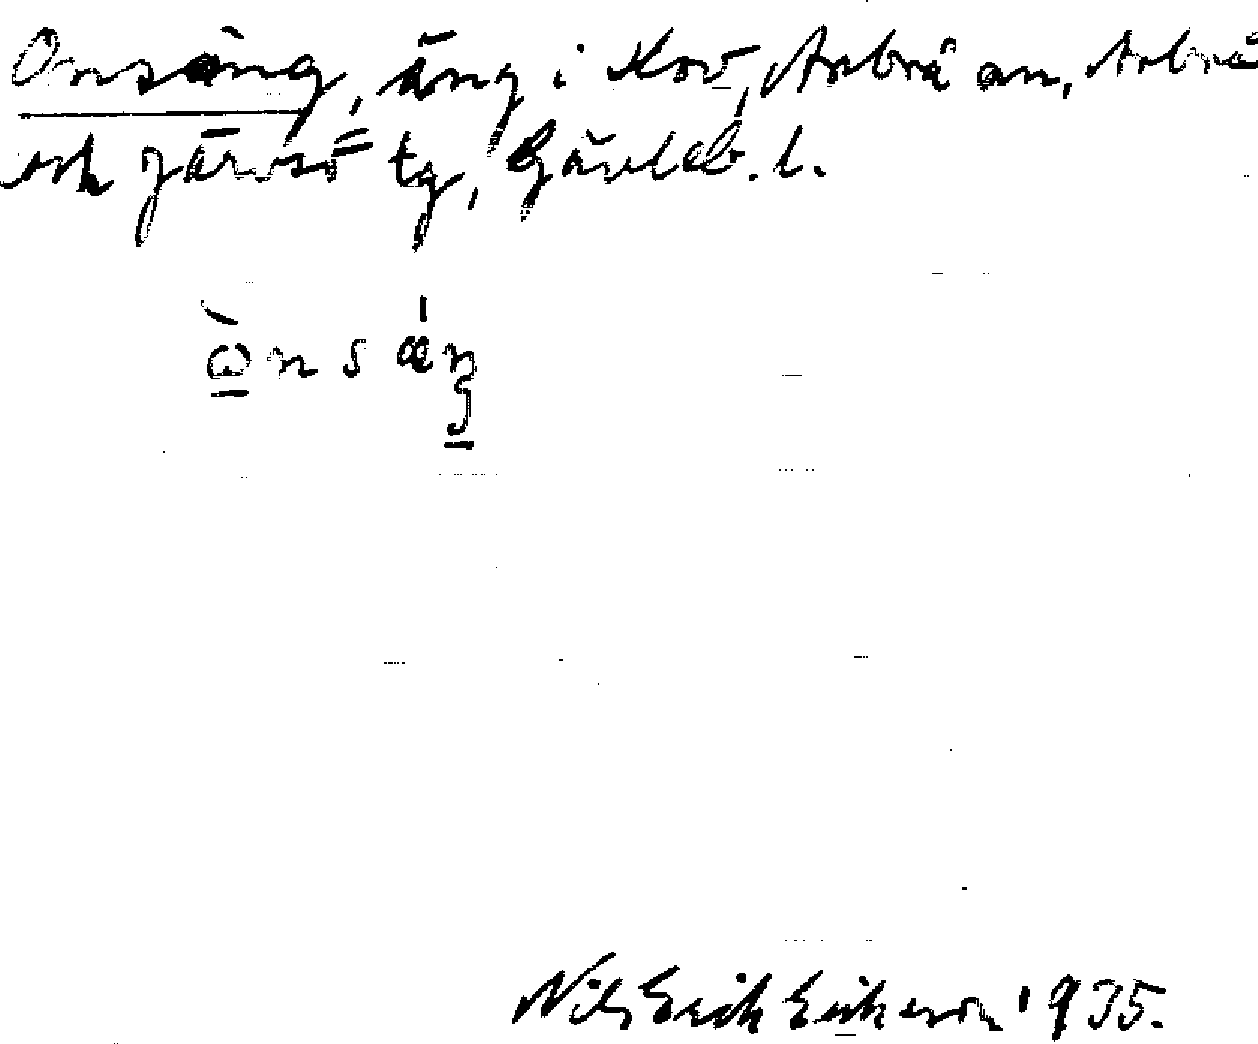 Onsäng, äng i Kov, Arbrå sn, Arbrå
och Järvsö tg, Gävleb. l.
ὼnsáŋ
Nils Erik Erikson 1935.